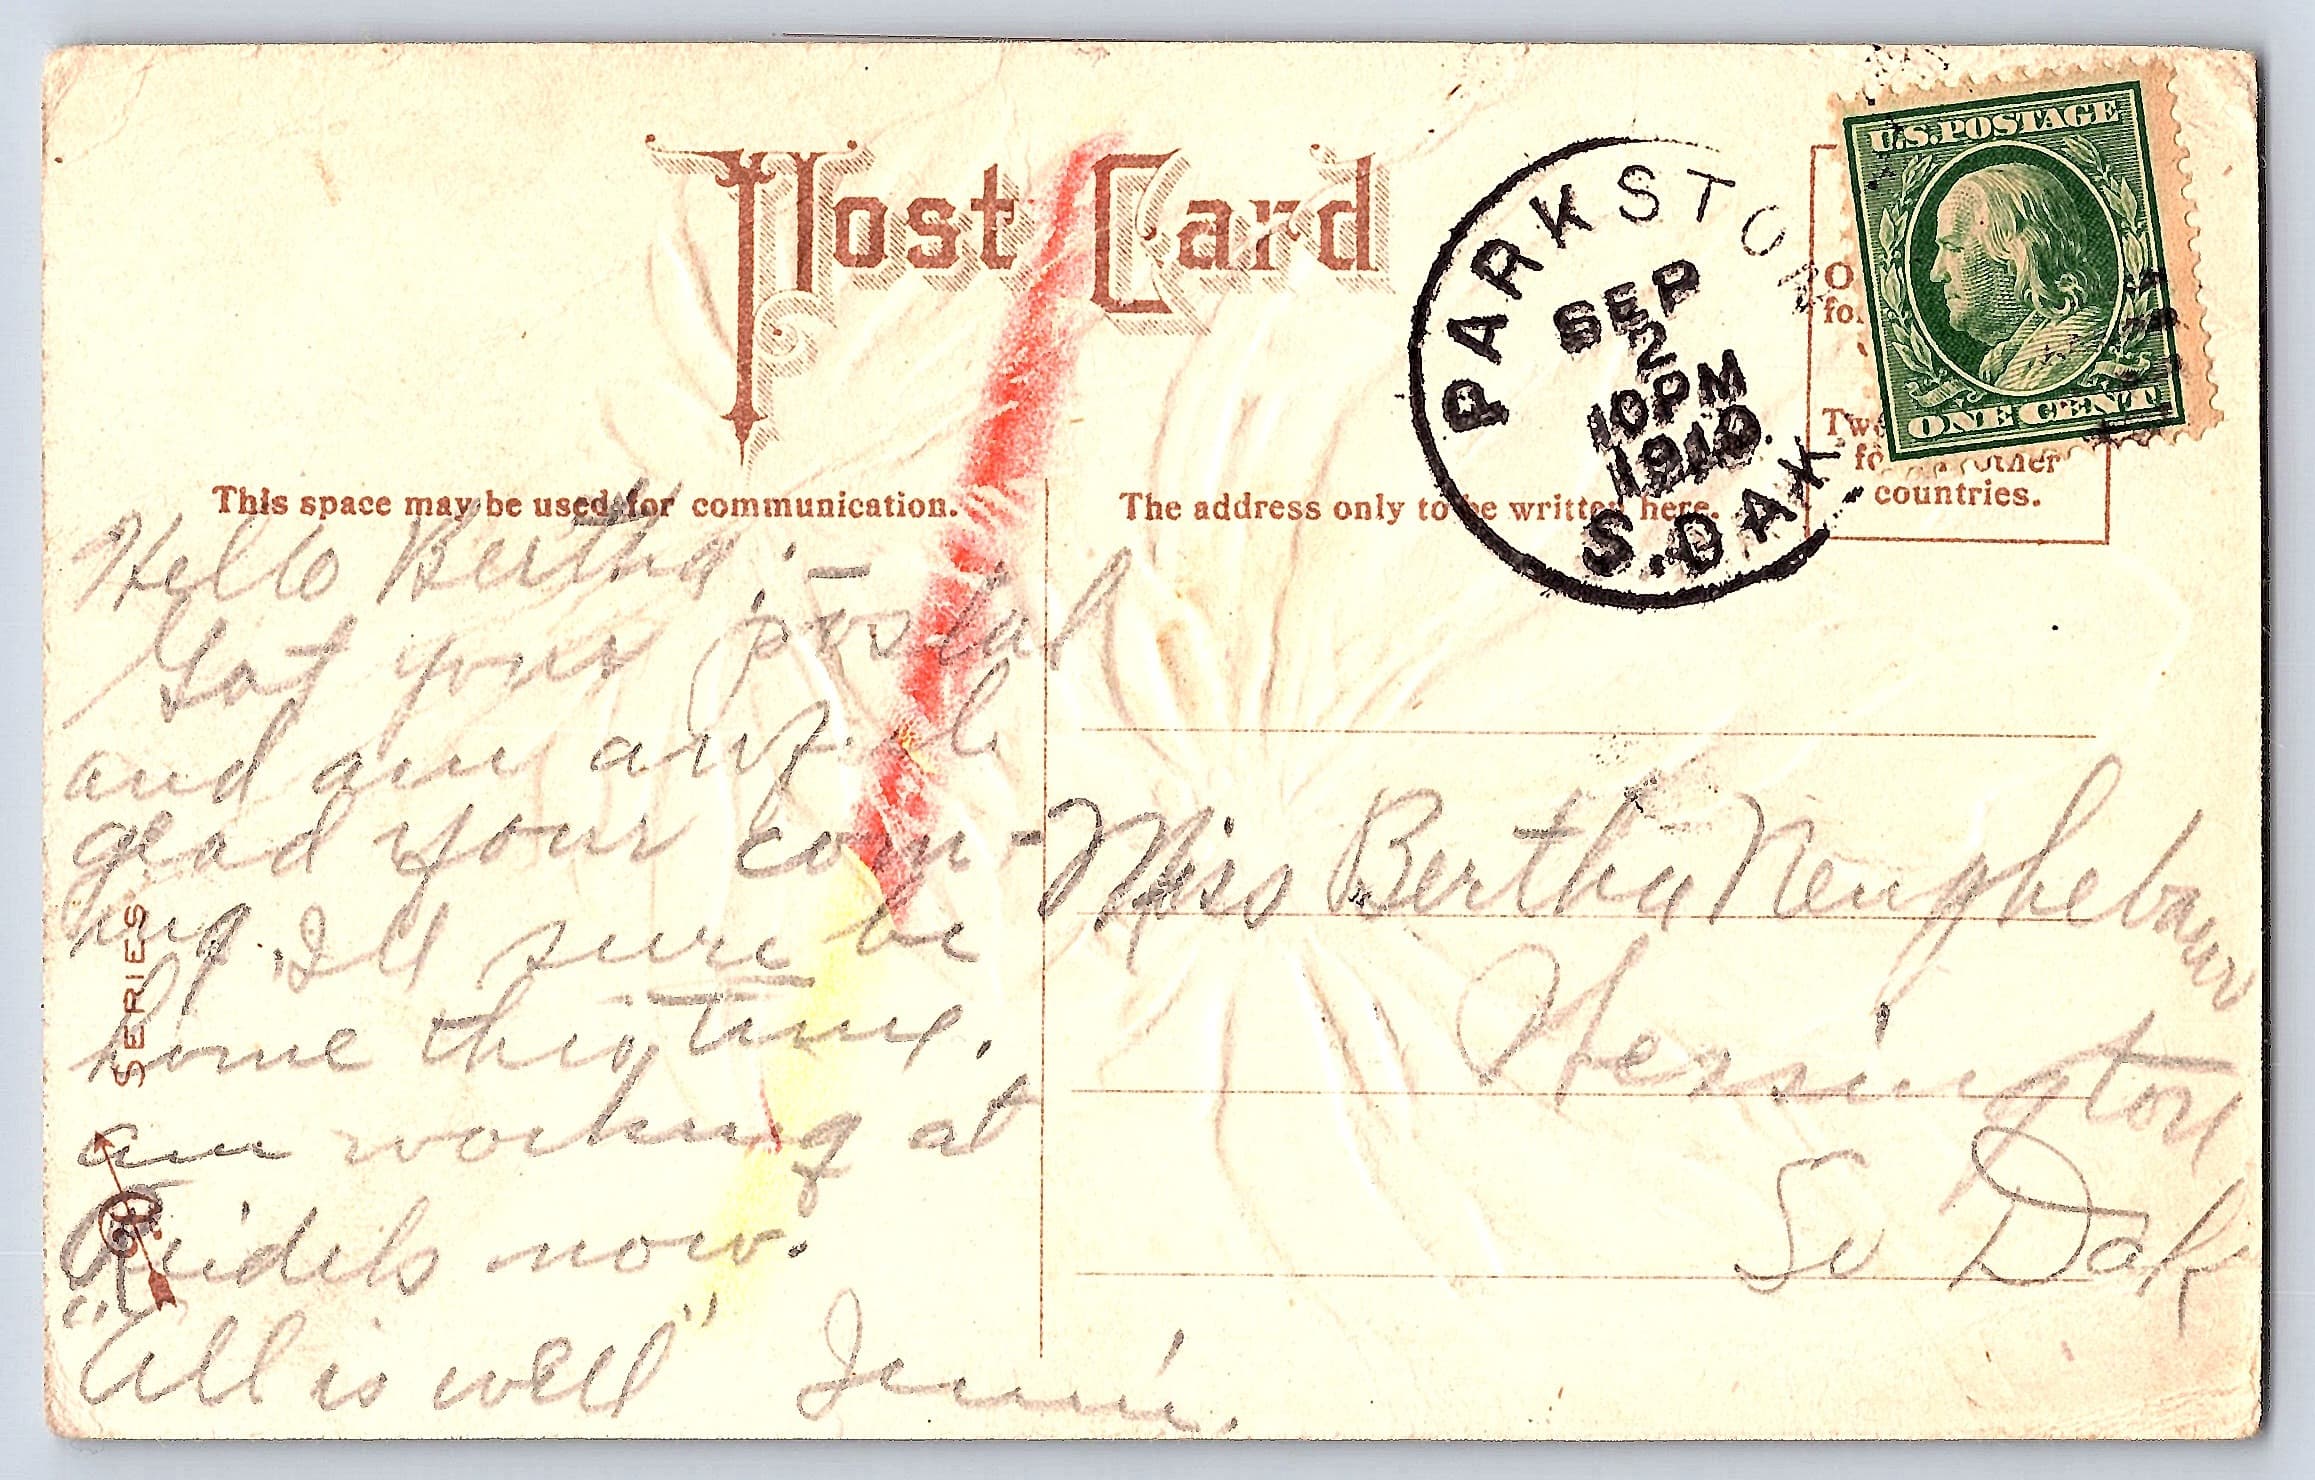 Post Card
This space may be used for communication.
The address only to be written here.
countries.
U.S. POSTAGE
ONE CENT
PARKSTON
SEP
2
10PM
1910
S. DAK
Hello Bertha:—
Got your postal
and am awf
glad your com-
ing. Ill sure be
home this time.
am working at
now.
"All is well" Jennie.
Miss Bertha Neughebauer
Wessington
So Dak
SERIES